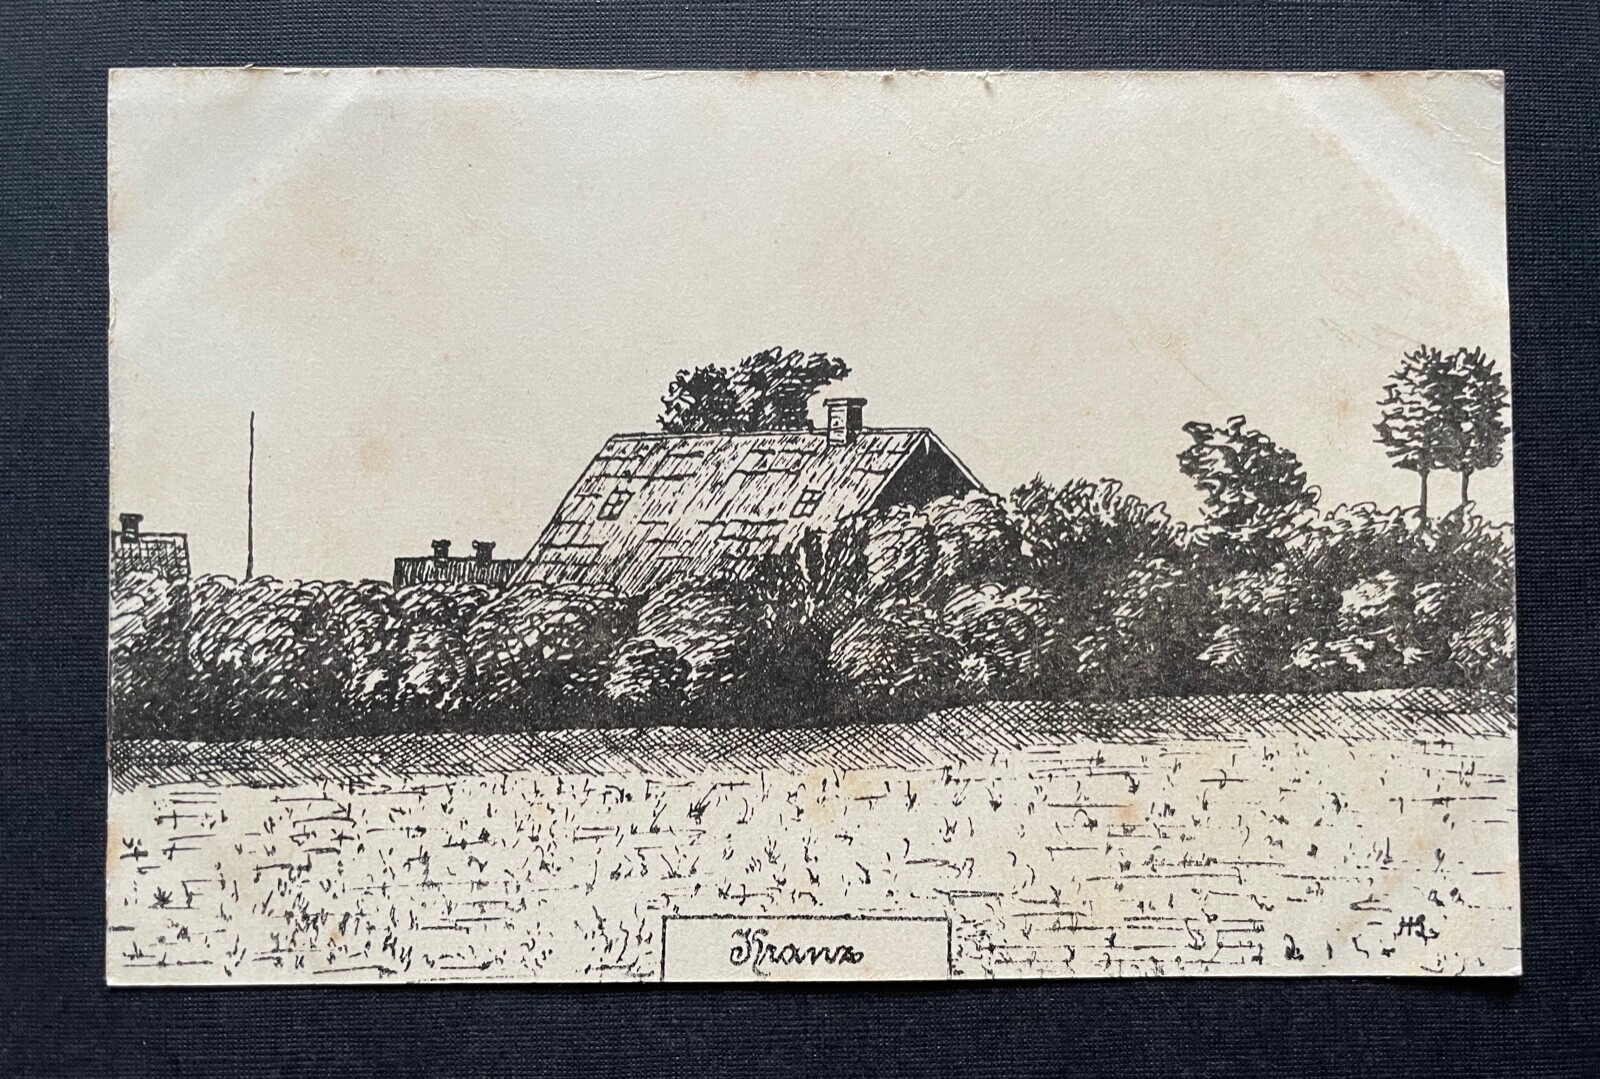 Kranz
HL.